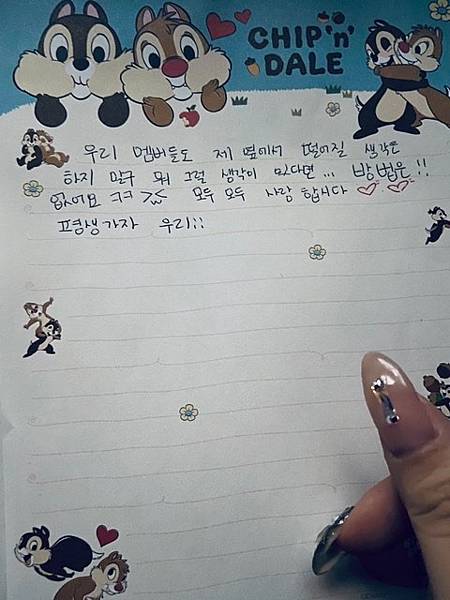 CHIP 'n' DALE
우리 멤버들도 제 옆에서 떨어질 생각은
하지 말구 뭐 그럴 생각이 있다면... 방법은!!
없어요 ㅋㅋ 모두 모두 사랑 합시다 ♡ ♡
평생가자 우리!!